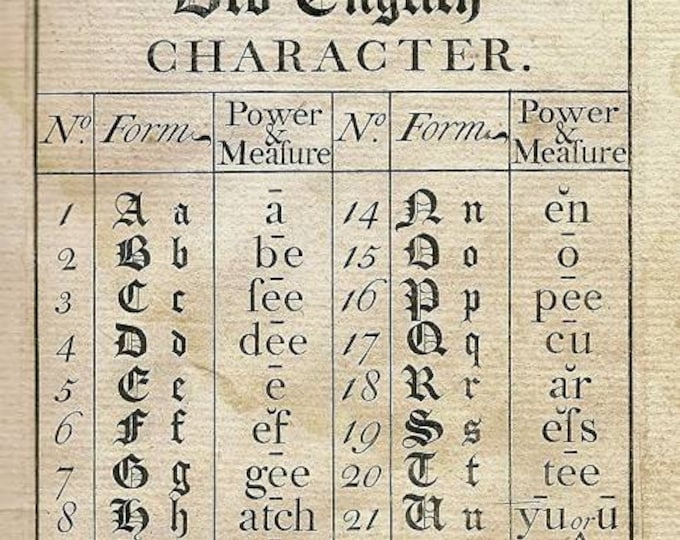 Old English
CHARACTER.
Nº. Form Power & Meaſure Nº. Form Power & Meaſure
1 A a ā 14 N n ĕn
2 B b bē 15 O o ō
3 C c ſēe 16 P p pēe
4 D d dēe 17 Q q cū
5 E e ē 18 R r ăr
6 F f ĕf 19 S s ĕſs
7 G g gēe 20 T t tēe
8 H h ātch 21 U u yū or ū